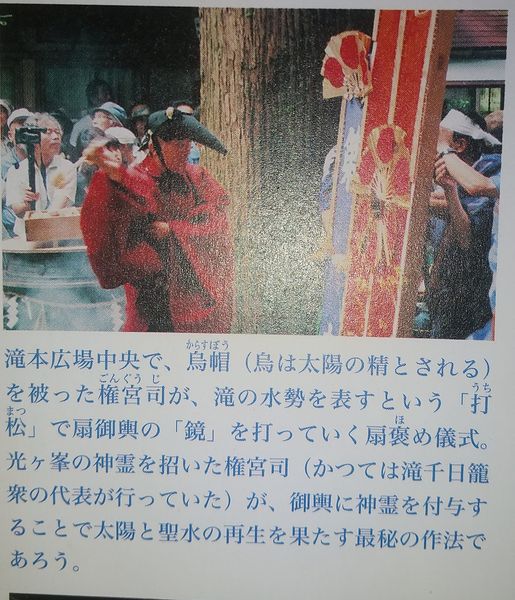 滝本広場中央で、烏帽（烏は太陽の精とされる）
を被った権宮司が、滝の水勢を表すという「打
松」で扇御輿の「鏡」を打っていく扇褒め儀式。
光ヶ峯の神霊を招いた権宮司（かつては滝千日籠
衆の代表が行っていた）が、御輿に神霊を付与す
ることで太陽と聖水の再生を果たす最秘の作法で
あろう。